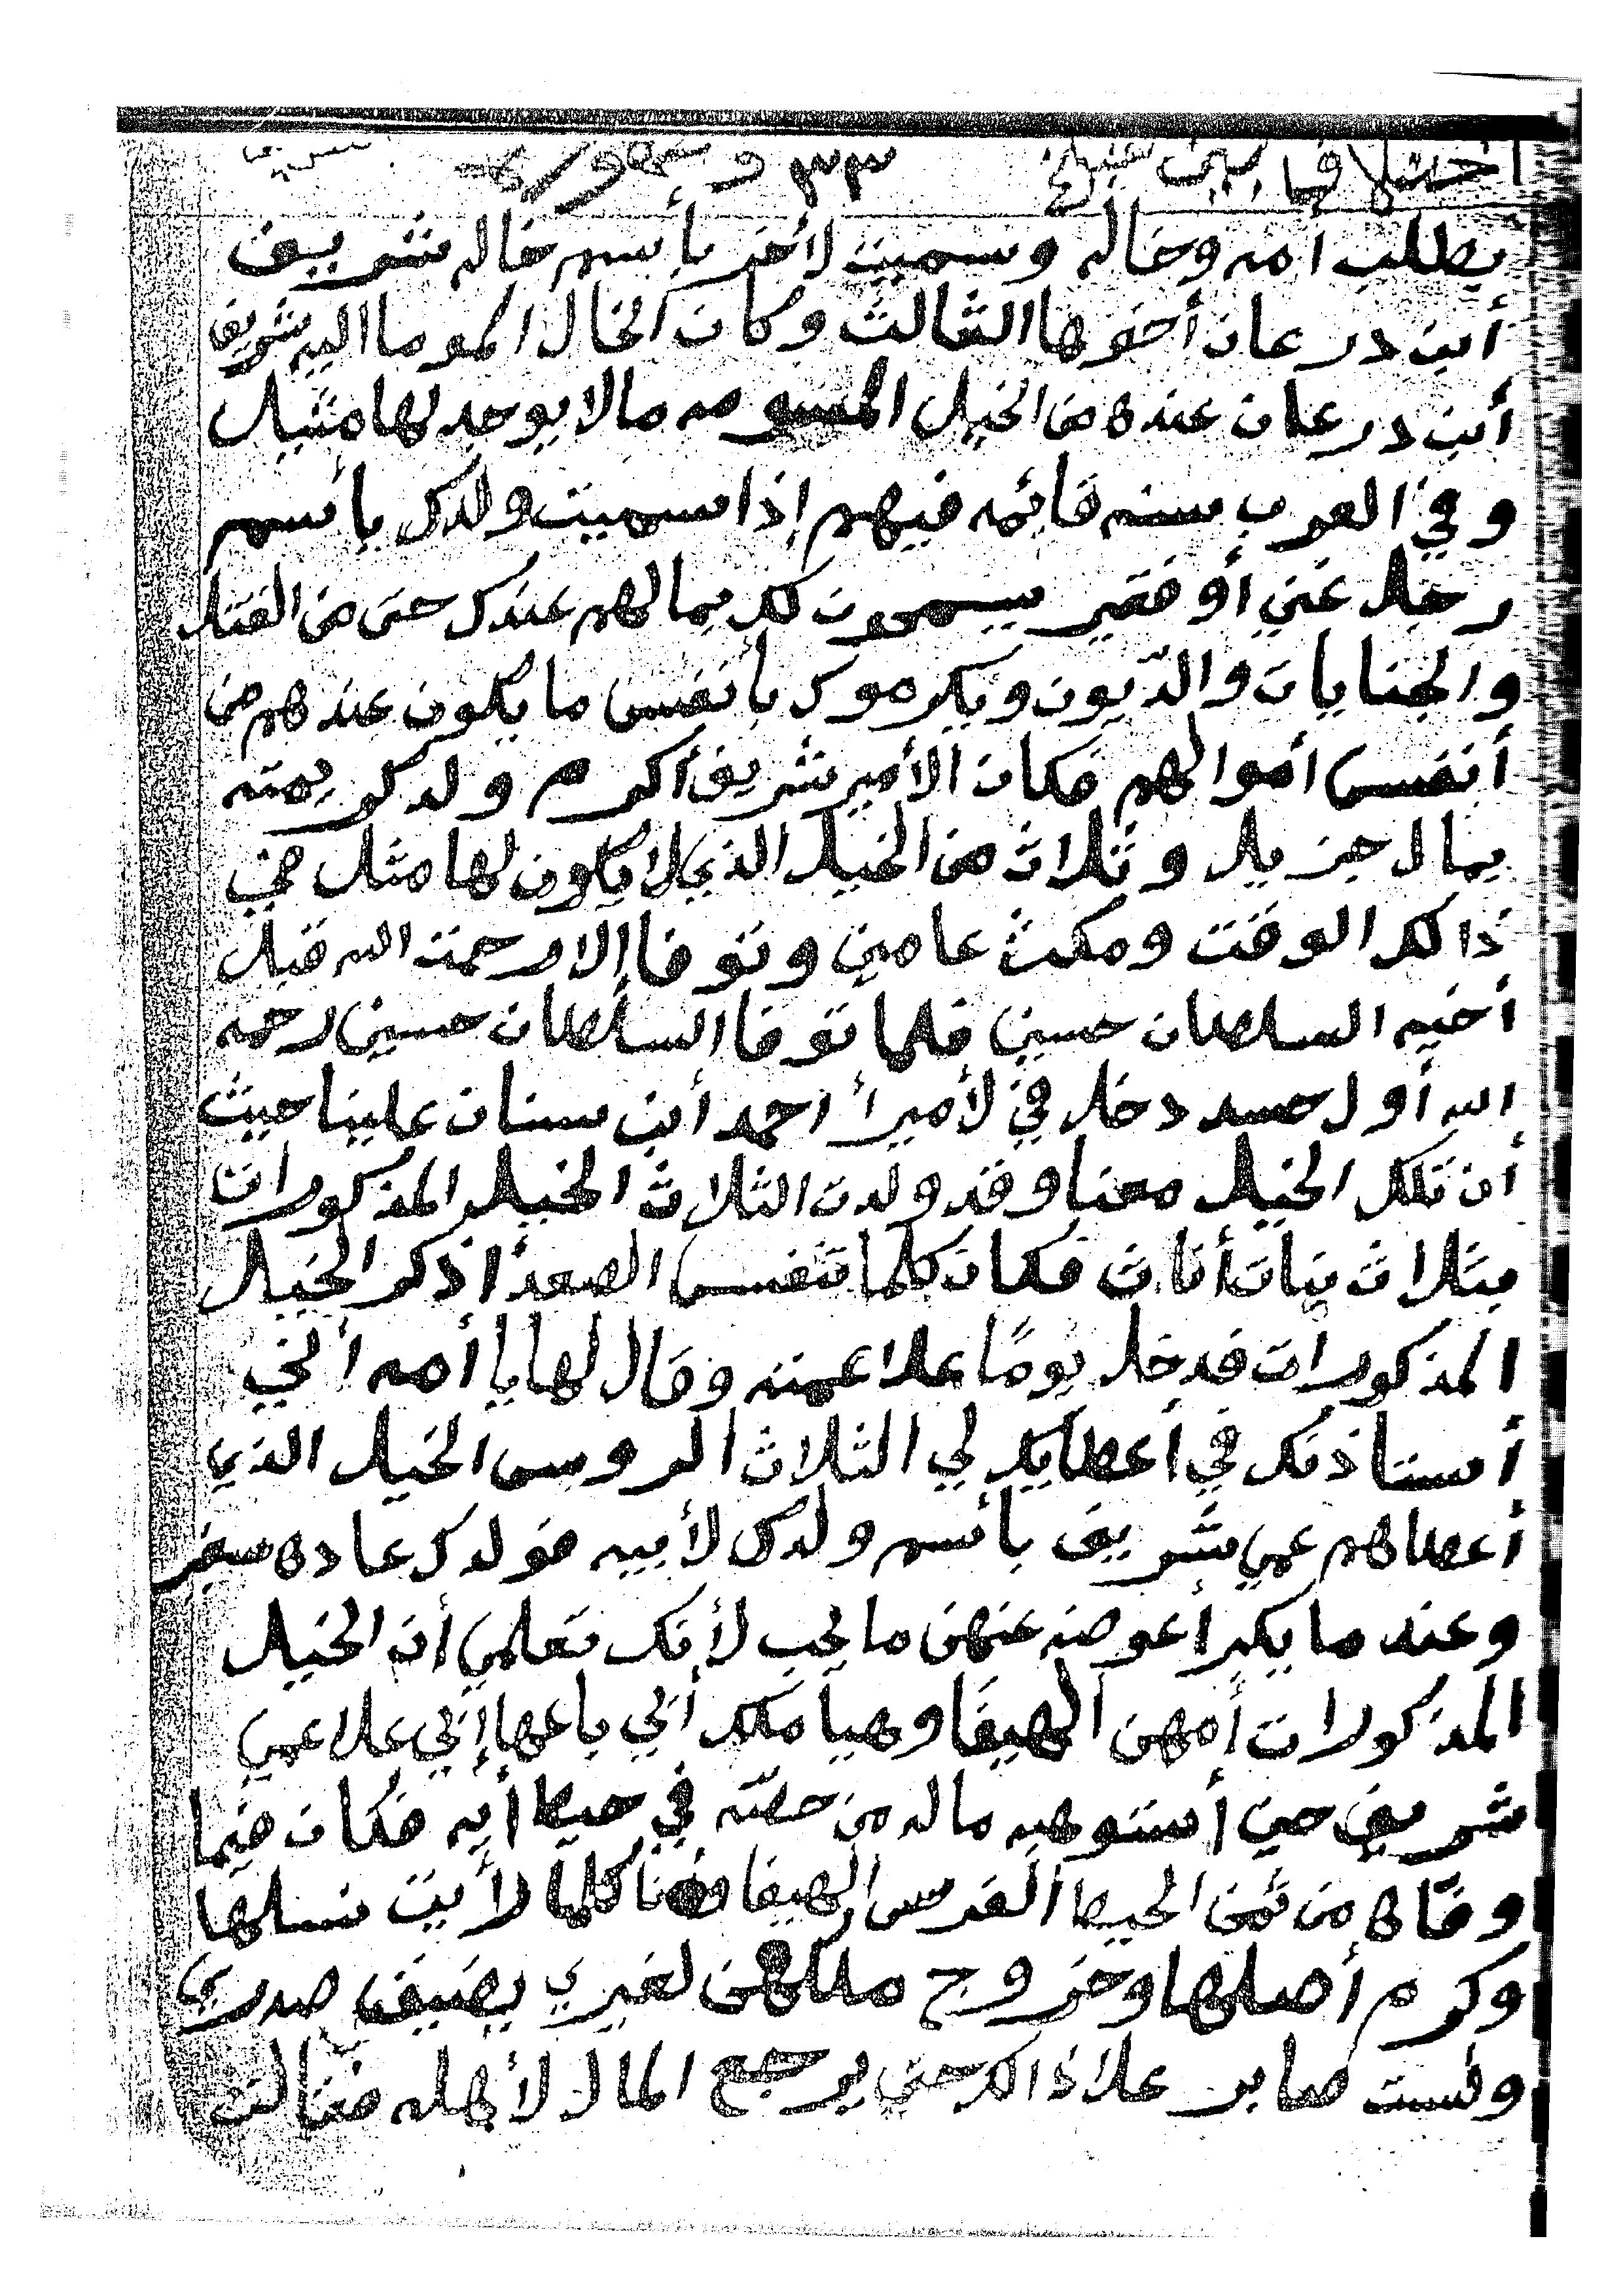 اختلافا بين ٣٣
يطلب أمه وخاله وسميت لأخر بأسم خاله شريف
أبن درعان أخوها الثالث وكان الخال الموما اليه شريف
أبن درعان عنده من الخيل المسومه مالا يوجد لها مثيل
وفي العرب سنه قائمه فيهم إذا سميت ولدك بأسم
رجل غني أو فقير يسمحون لك بمالهم عندك حتى من القتل
والجنايات والدّيون ويكرموك بأنفس ما يكون عندهم من
أنفس أموالهم فكان الأمير شريف أكرم ولد كريمته
بمال جزيل وثلاث من الخيل الذي لا يكون لها مثل في
ذالك الوقت ومكث عامين وتوفا إلا رحمت الله قبل
أخيه السلطان حسين فلما توفا السلطان حسين رحمه
الله أول حسد دخل في لأمير أحمد أبن سنان علينا حيث
أن تلك الخيل معنا وقد ولدت الثلاث الخيل المذكورات
بثلاث بنات أناث فكان كلما تنفس الصعدا ذكر الخيل
المذكورات فدخل يومًا علا عمته وقال لها يا أمه أني
أستاذنك في أعطايك لي الثلاث الروس الخيل الذي
أعطاهم عمي شريف بأسم ولدك لأبيه فولدك عاده صغير
وعند ما يكبر أعوضه عنهن ما يحب لأنك تعلمي أن الخيل
المذكورات أمهن الهيفا وهيا ملك أبي باعها إبي علا عمي
شريف حين أستوهبه ماله من حصّته في حيط أبه فكان فيما
وفّاه من ثمن الحيط الفرس الهيفا فأنا كلما رأيت نسلها
وكرم أصلها وخروج ملكهن لغيري يضيق صدري
ولست صابر علا ذالك حتى يرجع المال لأهله فقالت